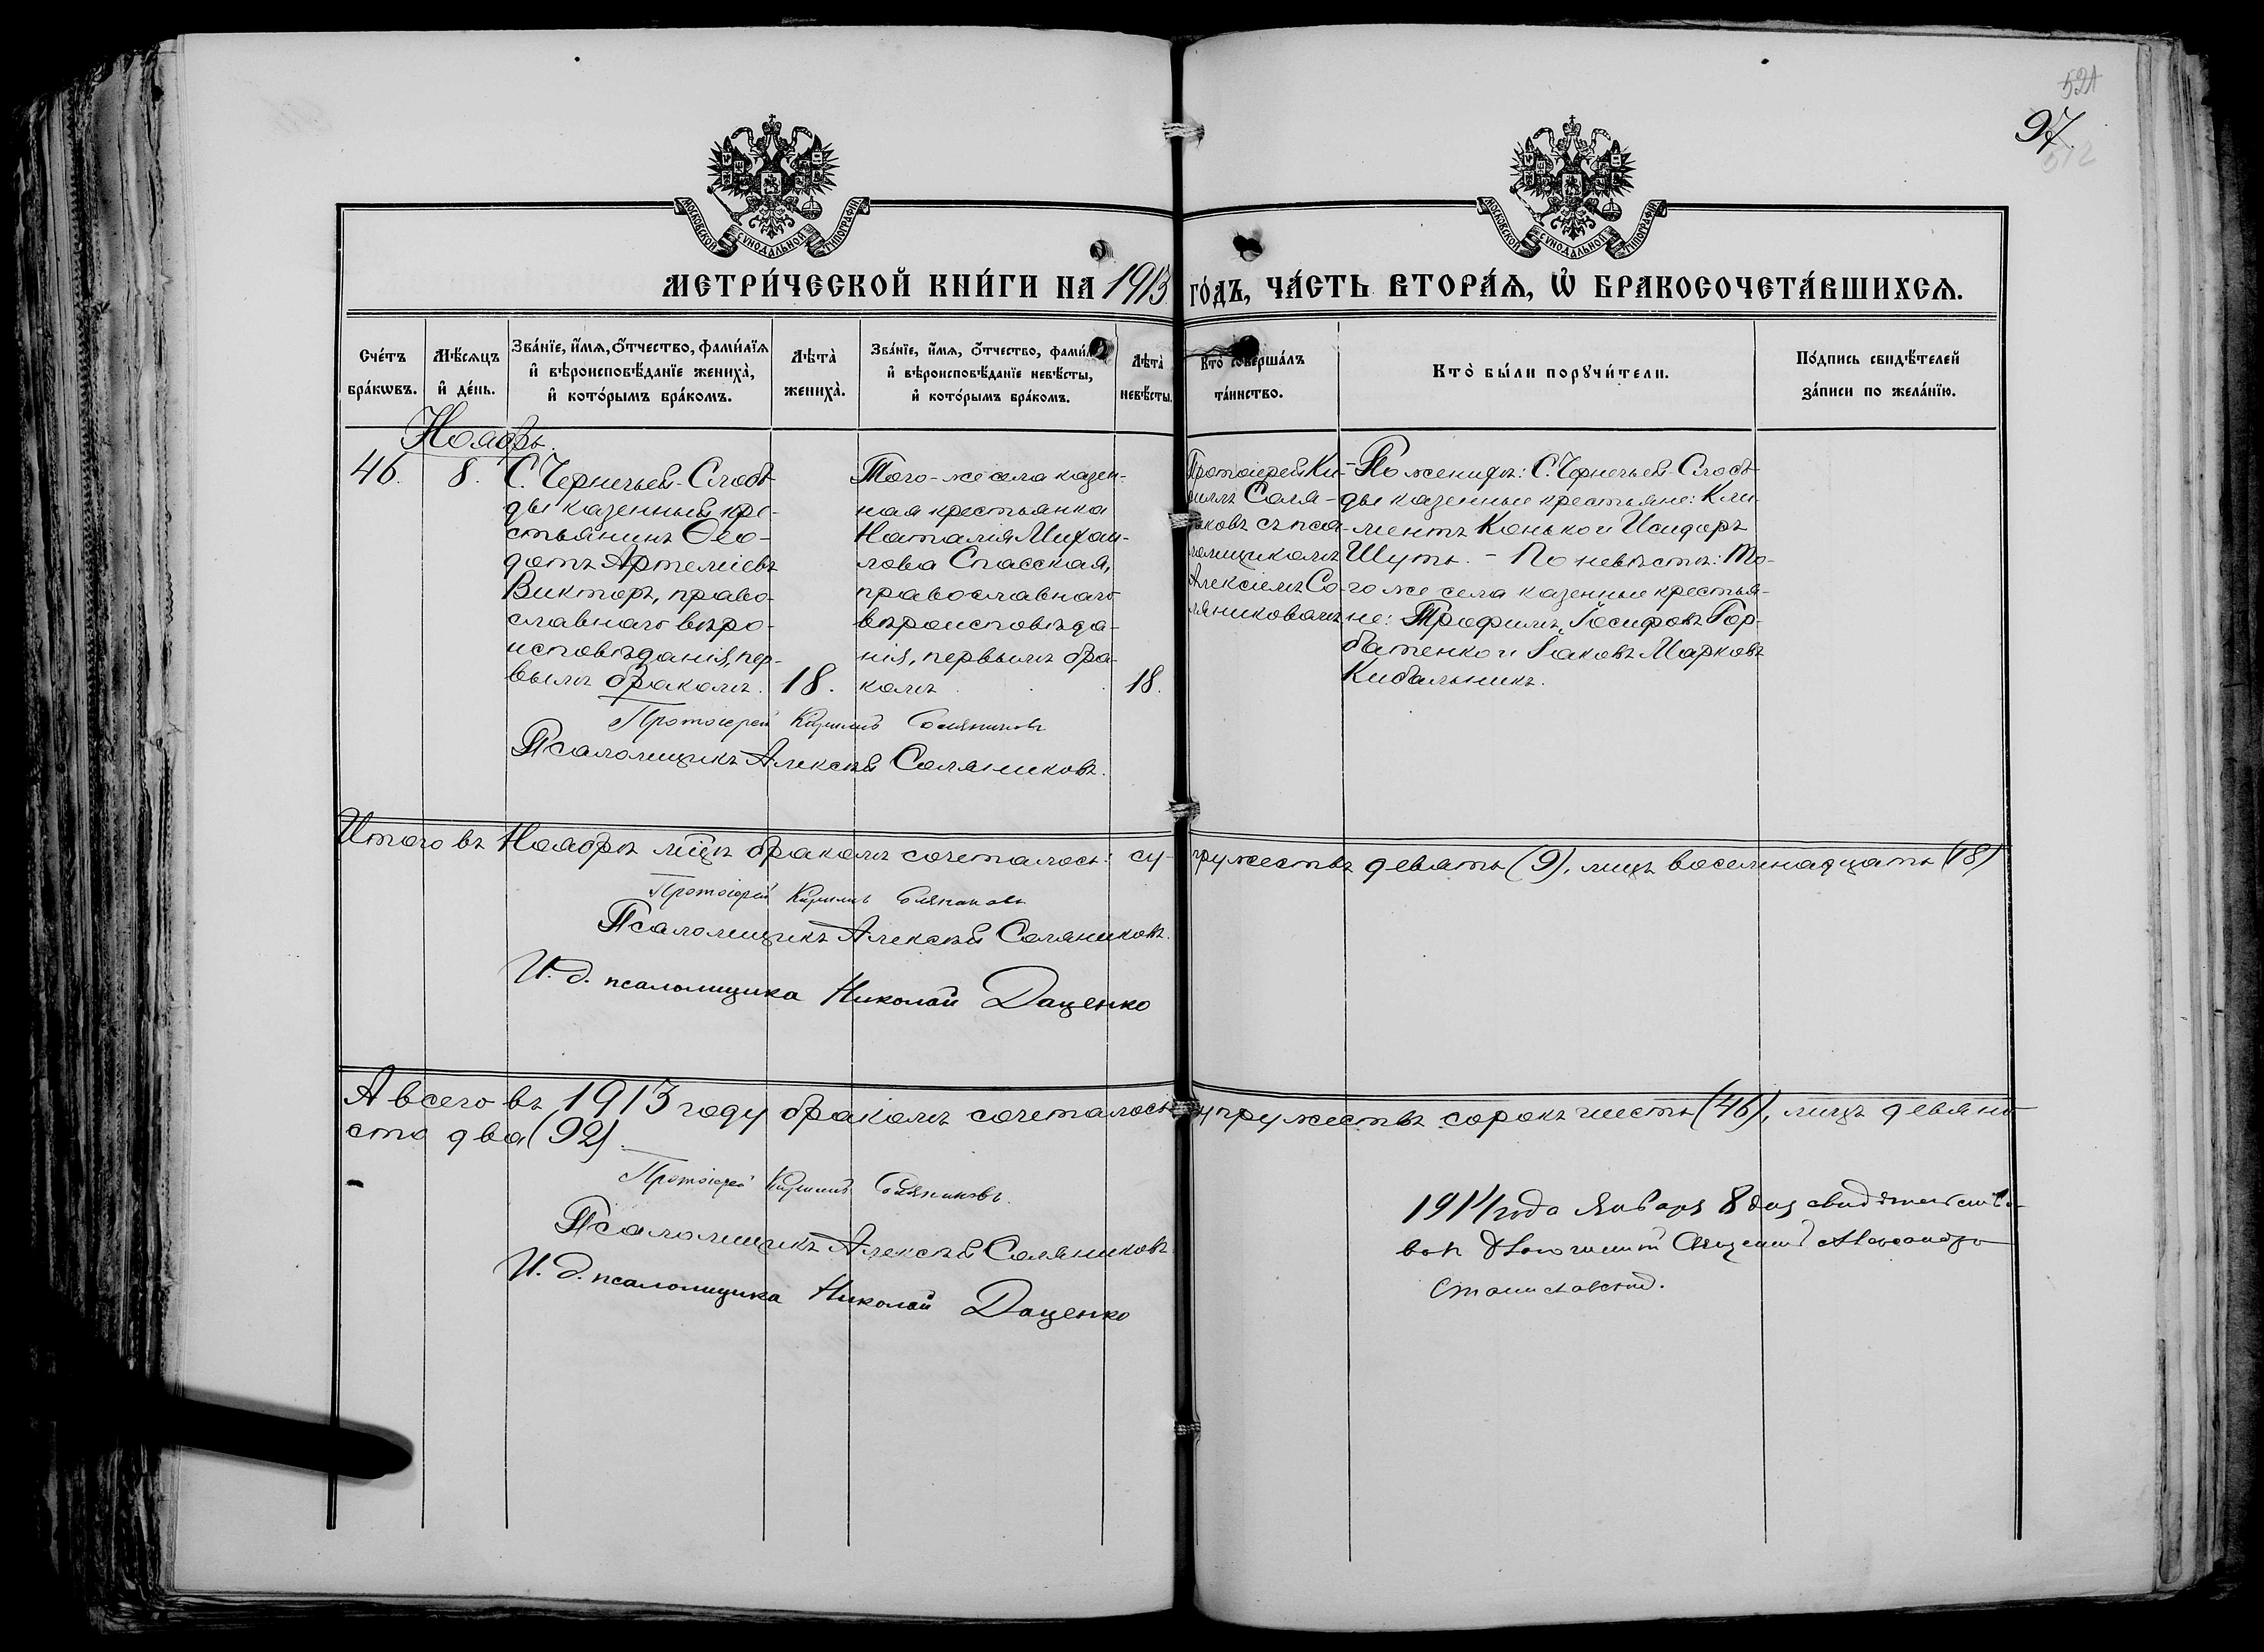 521
97.
512
МОСКОВСКОЙ СѴНОДАЛЬНОЙ ТИПОГРАФІИ
МОСКОВСКОЙ СѴНОДАЛЬНОЙ ТИПОГРАФІИ
МЕТРИ́ЧЕСКОЙ КНИ́ГИ НА 1913 ГО́ДЪ, ЧА́СТЬ ВТОРА́Я, Ѡ҆ БРАКОСОЧЕТА́ВШИХСЯ.
Сче́тъ
бра́кѡвъ.
Мѣ́сяцъ
и҆ де́нь.
Зва́нїе, и҆́мя, ѻ҆́тчество, фами́лїя
и҆ вѣроисповѣ́данїе жениха̀,
и҆ кото́рымъ бра́комъ.
Лѣта̀
жениха̀.
Зва́нїе, и҆́мя, ѻ҆́тчество, фами́л
и҆ вѣроисповѣ́данїе невѣ́сты,
и҆ кото́рымъ бра́комъ.
Лѣта̀
невѣ́сты.
Кто̀ соверша́лъ
та́инство.
Кто̀ бы́ли порꙋчи́тели.
По́дпись свидѣ́телей
за́писи по жела́нїю.
Ноябрь.
46.
8.
С. Чернечьей-Слобо-
ды казенный кре-
стьянинъ Ѳео-
дотъ Артеміевъ
Викторъ, право-
славнаго вѣро-
исповѣданія, пер-
вымъ бракомъ.
18.
Того-же села казен-
ная крестьянка
Наталія Михаи-
лова Спасская,
православнаго
вѣроисповѣда-
нія, первымъ бра-
комъ.
18.
Протоіерей Ки-
риллъ Соля-
никовъ съ пса-
ломщикомъ
Алексіемъ Со-
ляниковымъ
По женихѣ: С. Чернечьей-Слобо-
ды казенные крестьяне: Кли-
ментъ Конько и Исидоръ
Шуть. - По невѣстѣ: То-
го же села казенные крестья-
не: Трофимъ Іосифовъ Гор-
батенко и Іаковъ Марковъ
Кибальникъ.
Протоіерей Кириллъ Соляниковъ
Псаломщикъ Алексѣй Соляниковъ.
Итого въ Ноябрѣ мѣцѣ бракомъ сочеталось: су-пружествъ девять (9), лицъ восемнадцать (18)
Протоіерей Кириллъ Соляниковъ
Псаломщикъ Алексѣй Соляниковъ.
И. д. псаломщика Николай Даценко
А всего въ 1913 году бракомъ сочеталось супружествъ сорокъ шесть (46), лицъ девяно-
сто два (92).
Протоіерей Кириллъ Соляниковъ.
Псаломщикъ Алексѣй Соляниковъ
И. д. псаломщика Николай Даценко
1914 года Января 8 дня свидѣтельство-
валъ Благочинный Священникъ Александръ
Станиславскій.